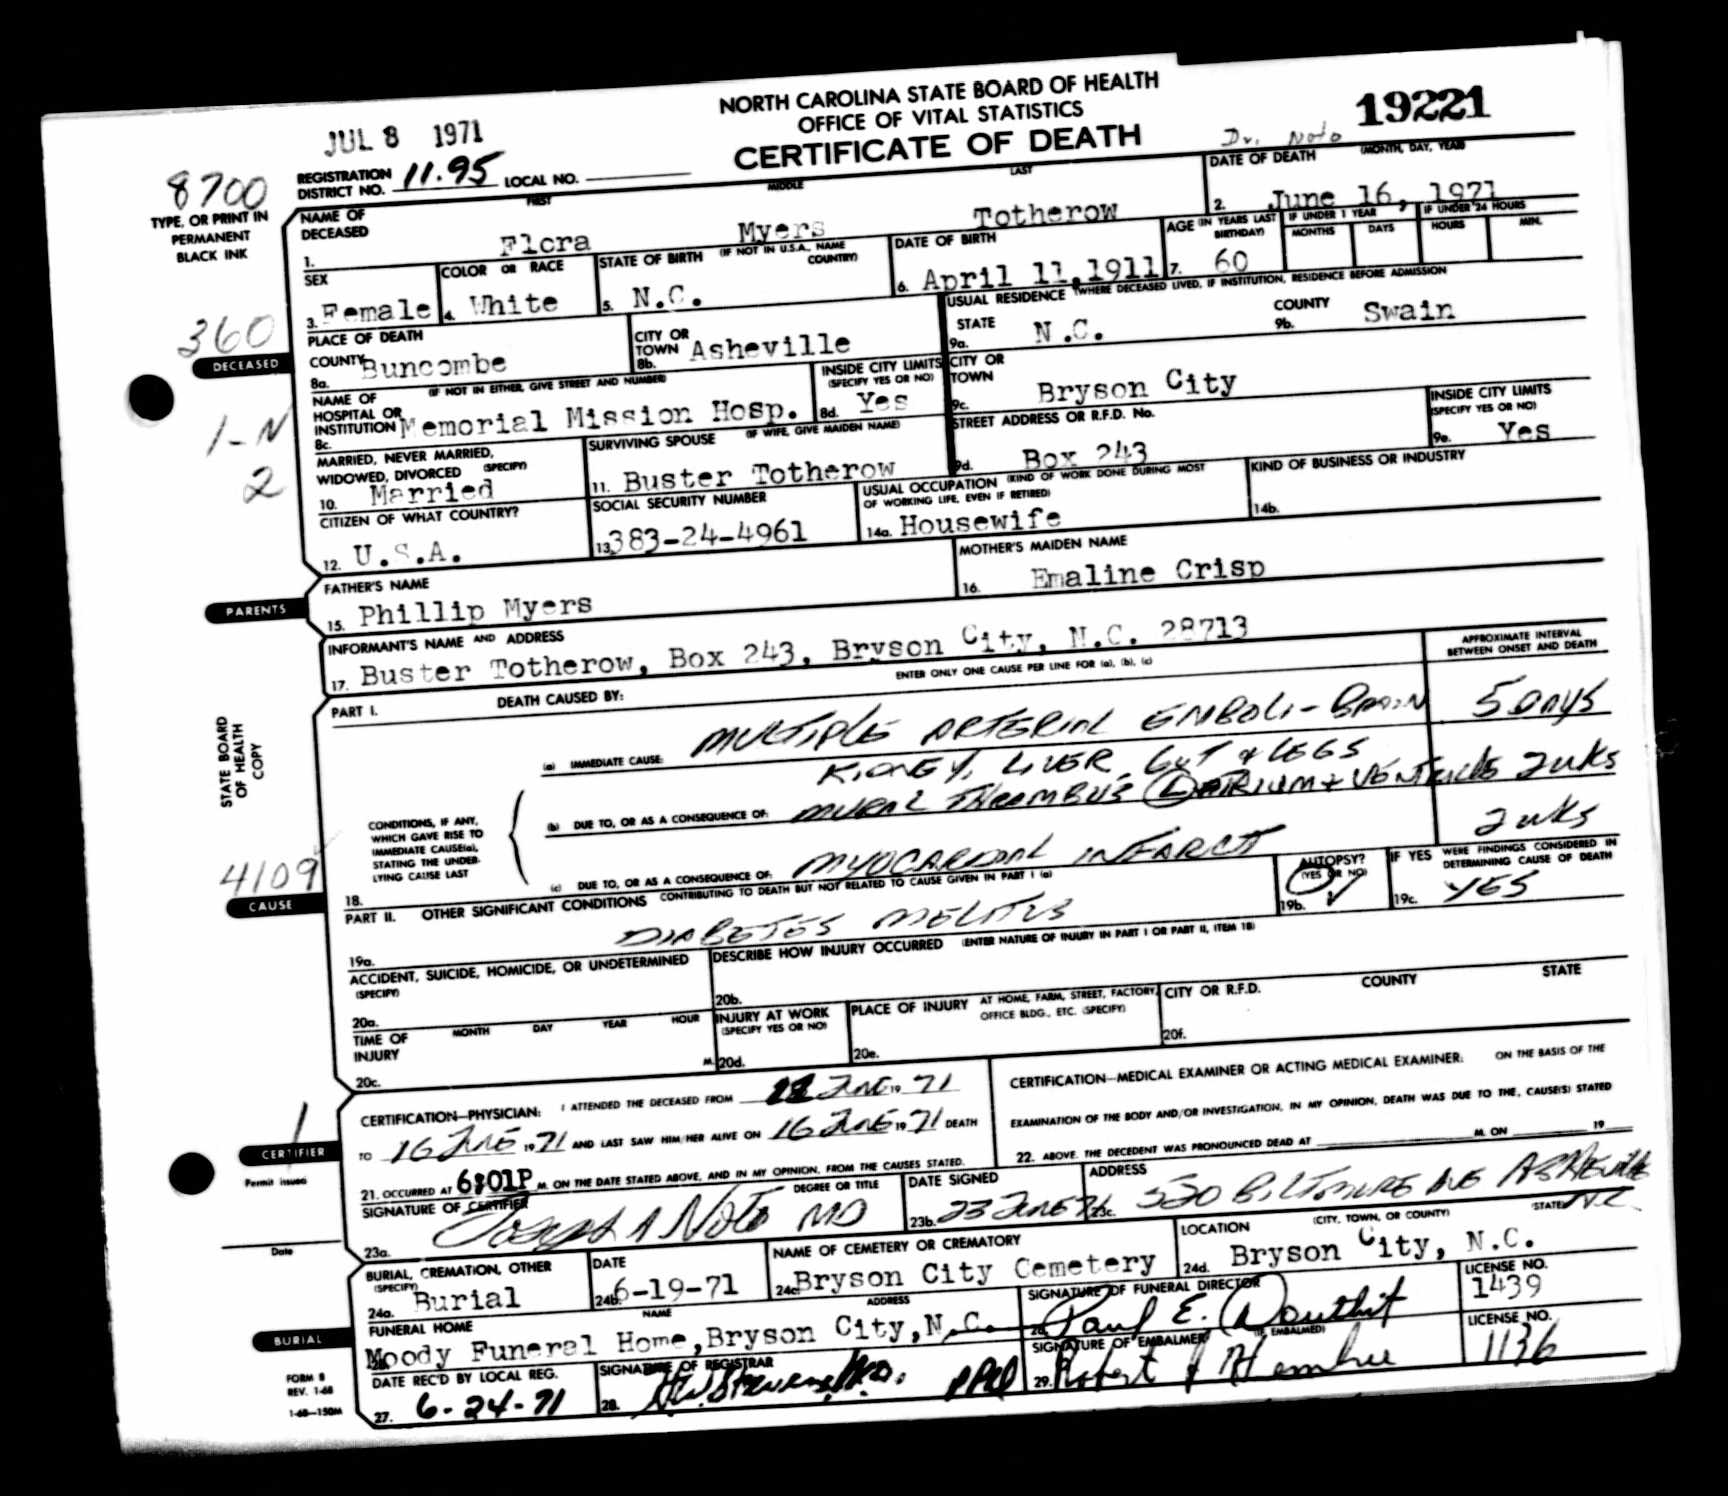 NORTH CAROLINA STATE BOARD OF HEALTH
OFFICE OF VITAL STATISTICS
CERTIFICATE OF DEATH
JUL 8 1971
19221
Dr. Noto
8700
REGISTRATION DISTRICT NO. 11.95 LOCAL NO.
TYPE, OR PRINT IN PERMANENT BLACK INK
NAME OF DECEASED FIRST MIDDLE LAST
1. Flora Myers Totherow
DATE OF DEATH (MONTH, DAY, YEAR)
2. June 16, 1971
SEX
3. Female
COLOR OR RACE
4. White
STATE OF BIRTH (IF NOT IN U.S.A., NAME COUNTRY)
5. N.C.
DATE OF BIRTH
6. April 11,1911
AGE (IN YEARS LAST BIRTHDAY)
7. 60
IF UNDER 1 YEAR MONTHS DAYS
IF UNDER 24 HOURS HOURS MIN.
360
DECEASED
PLACE OF DEATH
COUNTY
8a. Buncombe
CITY OR TOWN
8b. Asheville
USUAL RESIDENCE (WHERE DECEASED LIVED, IF INSTITUTION, RESIDENCE BEFORE ADMISSION
STATE
9a. N.C.
COUNTY
9b. Swain
NAME OF HOSPITAL OR INSTITUTION (IF NOT IN EITHER, GIVE STREET AND NUMBER)
8c. Memorial Mission Hosp.
INSIDE CITY LIMITS (SPECIFY YES OR NO)
8d. Yes
CITY OR TOWN
9c. Bryson City
1-N
2
MARRIED, NEVER MARRIED, WIDOWED, DIVORCED (SPECIFY)
10. Married
SURVIVING SPOUSE (IF WIFE, GIVE MAIDEN NAME)
11. Buster Totherow
STREET ADDRESS OR R.F.D. No.
9d. Box 243
INSIDE CITY LIMITS (SPECIFY YES OR NO)
9e. Yes
CITIZEN OF WHAT COUNTRY?
12. U.S.A.
SOCIAL SECURITY NUMBER
13. 383-24-4961
USUAL OCCUPATION (KIND OF WORK DONE DURING MOST OF WORKING LIFE, EVEN IF RETIRED)
14a. Housewife
KIND OF BUSINESS OR INDUSTRY
14b.
PARENTS
FATHER'S NAME
15. Phillip Myers
MOTHER'S MAIDEN NAME
16. Emaline Crisp
INFORMANT'S NAME AND ADDRESS
17. Buster Totherow, Box 243, Bryson City, N.C. 28713
STATE BOARD OF HEALTH COPY
PART I. DEATH CAUSED BY: ENTER ONLY ONE CAUSE PER LINE FOR (a), (b), (c)
APPROXIMATE INTERVAL BETWEEN ONSET AND DEATH
(a) IMMEDIATE CAUSE: MULTIPLE ARTERIAL EMBOLI - BRAIN 5 DAYS
KIDNEY, LIVER, GUT & LEGS
CONDITIONS, IF ANY, WHICH GAVE RISE TO IMMEDIATE CAUSE(a), STATING THE UNDERLYING CAUSE LAST
(b) DUE TO, OR AS A CONSEQUENCE OF: MURAL THROMBUS (L) ATRIUM + VENTRICLE 2 wks
(c) DUE TO, OR AS A CONSEQUENCE OF: MYOCARDIAL INFARCT 2 wks
18.
4109
CAUSE
PART II. OTHER SIGNIFICANT CONDITIONS CONTRIBUTING TO DEATH BUT NOT RELATED TO CAUSE GIVEN IN PART I (a)
19a. DIABETES MELITUS
AUTOPSY? (YES OR NO)
19b. ✓
IF YES WERE FINDINGS CONSIDERED IN DETERMINING CAUSE OF DEATH
19c. YES
ACCIDENT, SUICIDE, HOMICIDE, OR UNDETERMINED (SPECIFY)
20a.
DESCRIBE HOW INJURY OCCURRED (ENTER NATURE OF INJURY IN PART I OR PART II, ITEM 18)
20b.
TIME OF INJURY MONTH DAY YEAR HOUR
20c. M.
INJURY AT WORK (SPECIFY YES OR NO)
20d.
PLACE OF INJURY AT HOME, FARM, STREET, FACTORY, OFFICE BLDG., ETC. (SPECIFY)
20e.
CITY OR R.F.D. COUNTY STATE
20f.
1
CERTIFIER
Permit issued
Date
CERTIFICATION—PHYSICIAN: I ATTENDED THE DECEASED FROM 12 JUNE 19 71
TO 16 JUNE 19 71 AND LAST SAW HIM/HER ALIVE ON 16 JUNE 19 71 DEATH
21. OCCURRED AT 6:01P M. ON THE DATE STATED ABOVE, AND IN MY OPINION, FROM THE CAUSES STATED.
CERTIFICATION—MEDICAL EXAMINER OR ACTING MEDICAL EXAMINER: ON THE BASIS OF THE
EXAMINATION OF THE BODY AND/OR INVESTIGATION, IN MY OPINION, DEATH WAS DUE TO THE, CAUSE(S) STATED
22. ABOVE. THE DECEDENT WAS PRONOUNCED DEAD AT M. ON 19
SIGNATURE OF CERTIFIER DEGREE OR TITLE
23a. Joseph A Noto MD
DATE SIGNED
23b. 23 JUNE 71
ADDRESS
23c. 520 BILTMORE AVE ASHEVILLE NC
BURIAL, CREMATION, OTHER (SPECIFY)
24a. Burial
DATE
24b. 6-19-71
NAME OF CEMETERY OR CREMATORY
24c. Bryson City Cemetery
LOCATION (CITY, TOWN, OR COUNTY) (STATE)
24d. Bryson City, N.C.
BURIAL
FUNERAL HOME NAME ADDRESS
Moody Funeral Home,Bryson City,N.C.
SIGNATURE OF FUNERAL DIRECTOR
Paul E. Douthit
LICENSE NO.
1439
DATE REC'D BY LOCAL REG.
27. 6-24-71
SIGNATURE OF REGISTRAR
28. H.W. Stevens, M.D.
SIGNATURE OF EMBALMER (IF EMBALMED)
29. Robert J Hembree
LICENSE NO.
1136
FORM 8
REV. 1-68
1-68—150M